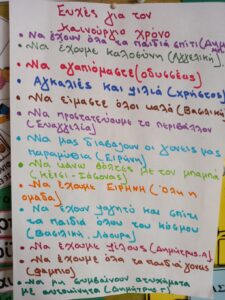 Ευχές για τον
καινούργιο χρόνο
• Να έχουν όλα τα παιδιά σπίτι (Δημήτρης
• Να έχουμε καλοσύνη (Αγγελική)
• Να αγαπιόμαστε (οδυσσέας)
• Αγκαλιές και φιλιά (Χρήστος)
• Να είμαστε όλοι μαζί (Βασιλική
• Να προστατεύουμε το περιβάλλον
(Ευαγγελία)
• Να μας διαβάζουν οι γονείς μας
παραμύθια (Ειρήνη)
• Να κάνω βόλτες με τον μπαμπά
(Κέισι - Ιάσονας)
• Να έχουμε ΕΙΡΗΝΗ (Όλη η
ομάδα)
• Να έχουν φαγητό και σπίτι
τα παιδιά όλου του κόσμου
(Βασιλική, Λάουρα)
• Να έχουμε φίλους (Δημήτρης Λ)
• Να έχουμε όλα τα παιδιά γονείς
(Φάμπιο)
• Να μη συμβαίνουν ατυχήματα
με αυτοκίνητα (Δημήτρης Γ)